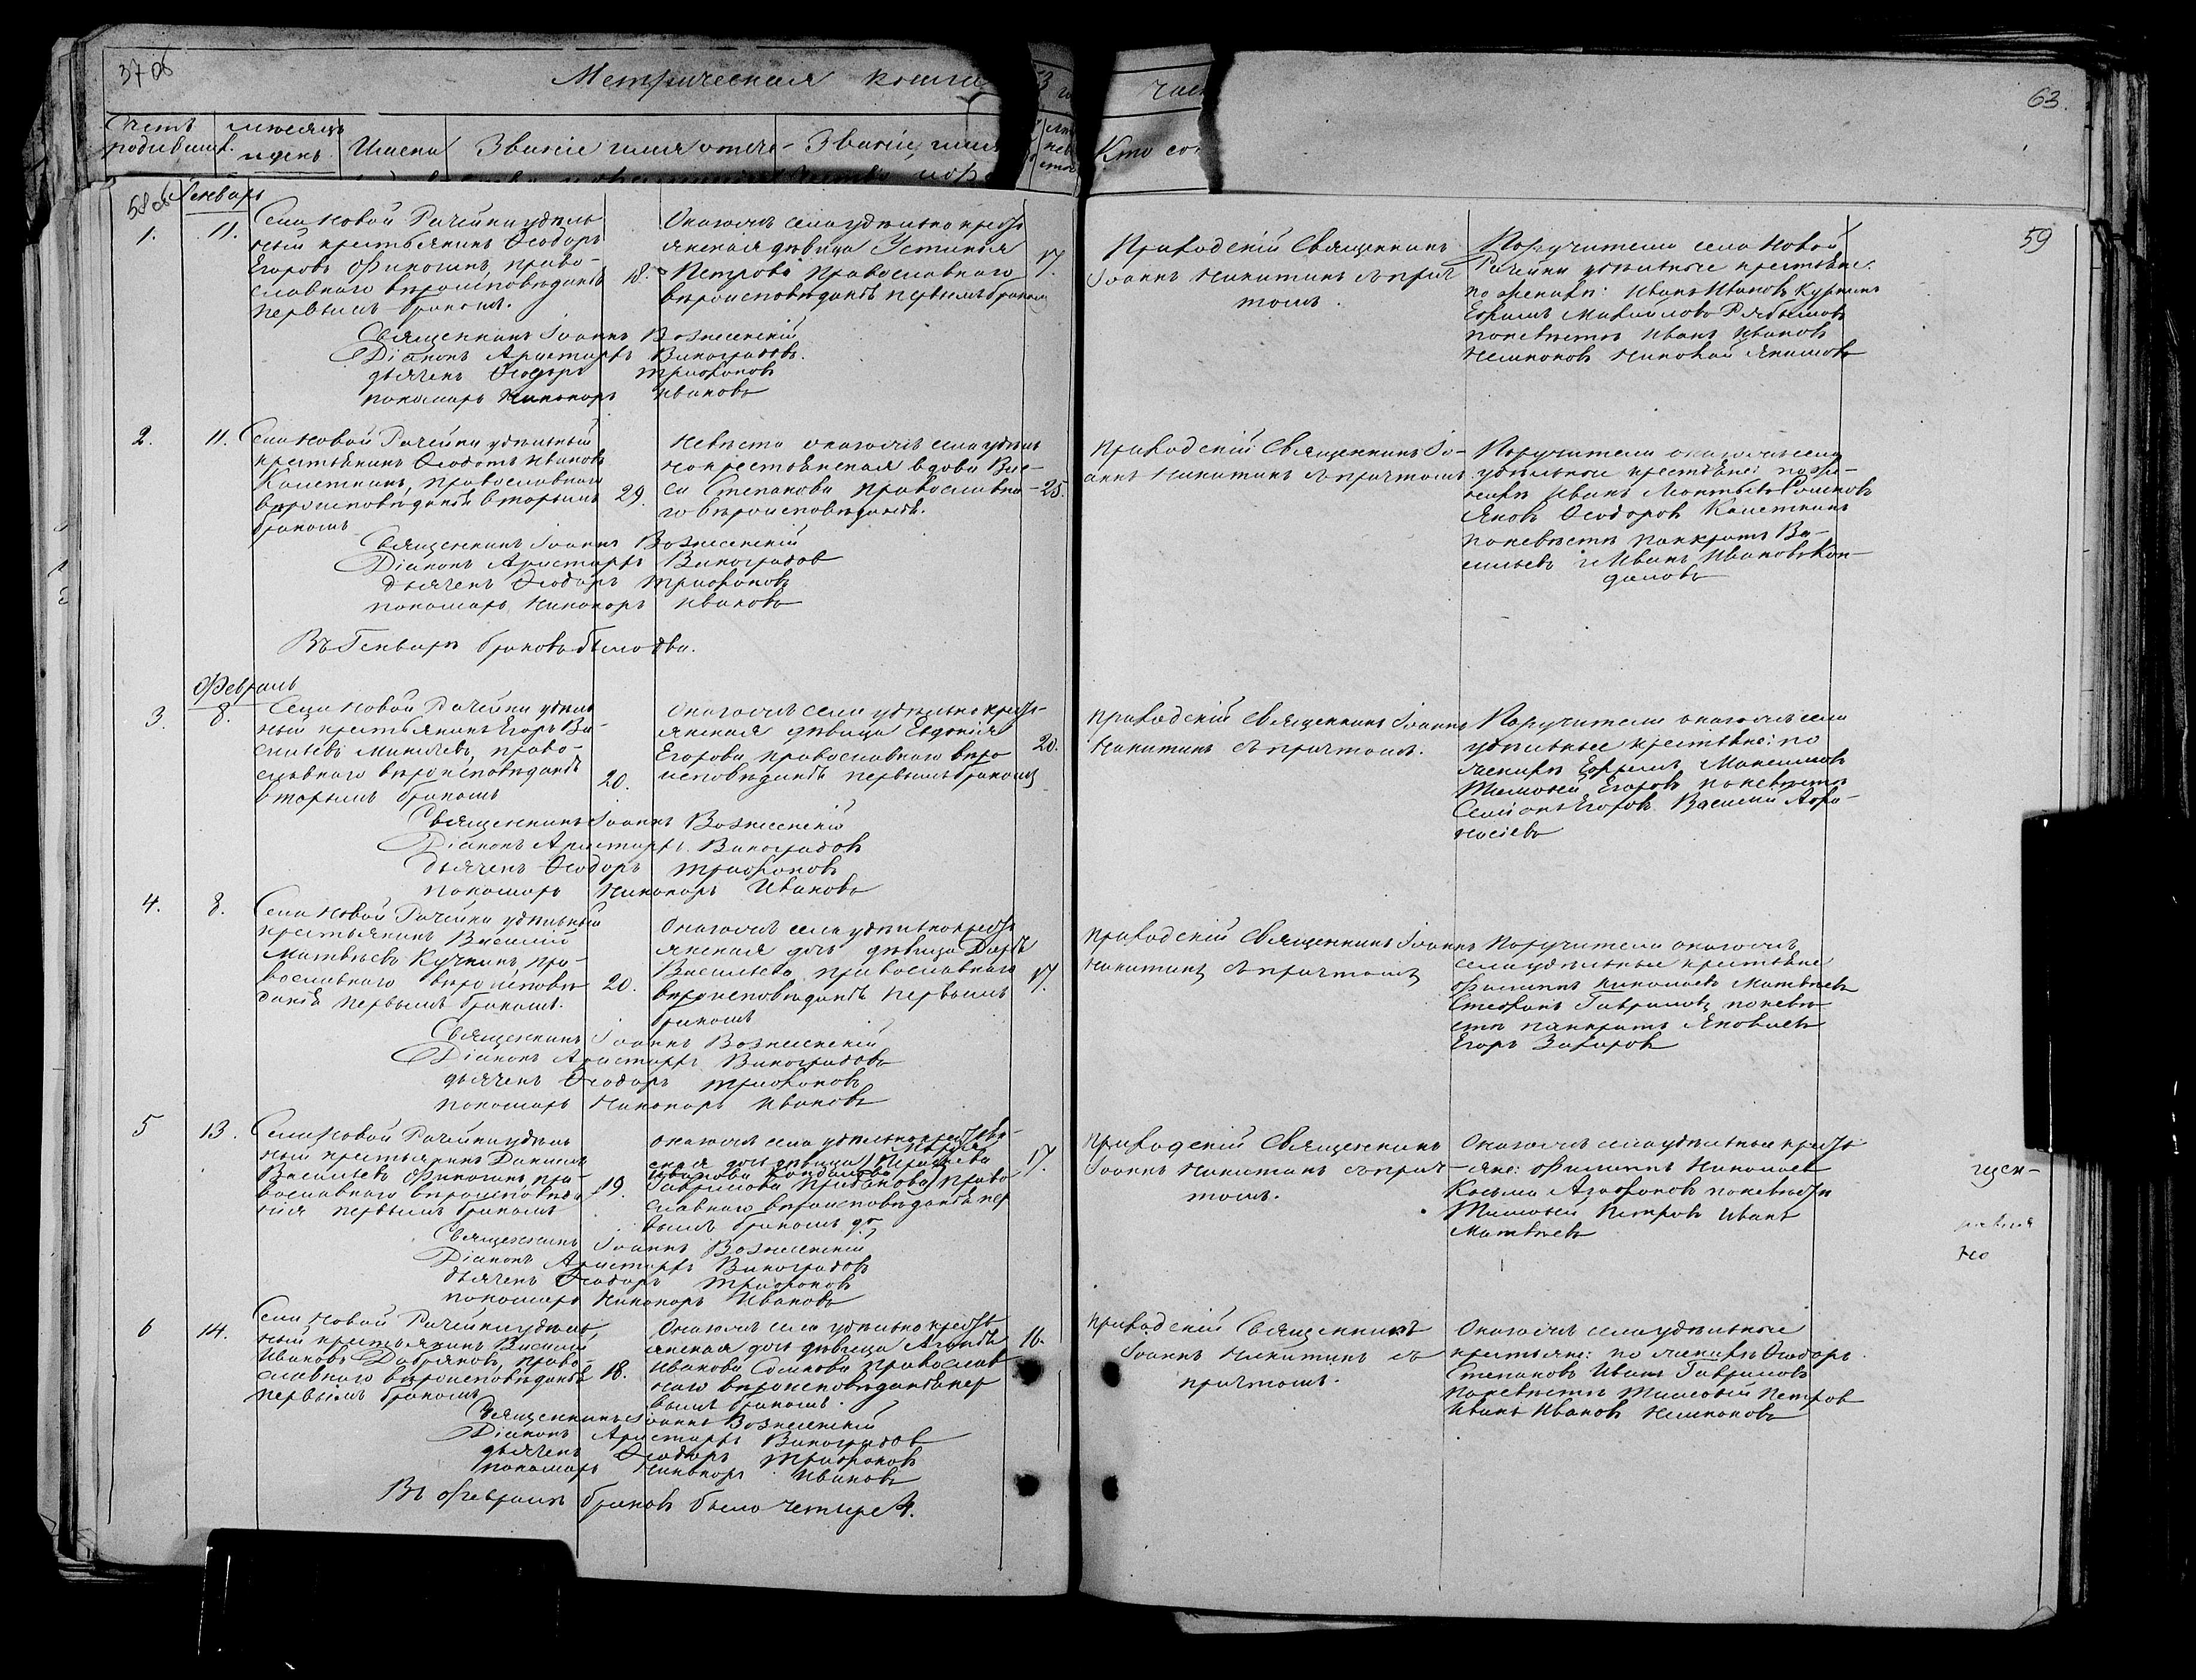 37 об
Метрическая книга
час
63.
Счетъ родившихся
месяцъ и день
Имена
Званіе имя отече-
Званіе, имя
Кто со
58 об
Генварь
59
1.
11.
Села Новой Рачейки удѣль
ный крестьянинъ Ѳеодоръ
Егоровъ Финогинъ, право-
славнаго вѣроисповѣданія
первымъ бракомъ.
18.
Оногожъ села удѣльно крестъ
янская дѣвица Устинія
Петрова Православнаго
вѣроисповѣданія первымъ бракомъ
17.
Приходскій Священникъ
Іоаннъ Никитинъ съ прич
томъ.
Поручители села Новой
Рачейки удѣльные крестьяне:
по женихѣ: Иванъ Ивановъ
Ефремъ Михайловъ
по невѣстѣ Иванъ Ивановъ
Николай Якимовъ
Священникъ Іоаннъ Вознесенскій
Діаконъ Аристархъ Виноградовъ.
дьячекъ Ѳеодоръ Трифоновъ
пономарь Никаноръ Ивановъ
2.
11.
Села Новой Рачейки удѣльный
крестьянинъ Ѳеодотъ Ивановъ
православнаго
вѣроисповѣданія вторымъ
бракомъ
29.
Невѣста оногожъ села удѣль
но крестьянская вдова Вас-
са Степанова Православна-
го вѣроисповѣданія.
25.
Приходскій Священникъ Іо-
аннъ Никитинъ съ причтомъ
Поручители оногожъ села
удѣльные крестьяне: по же-
нихѣ Иванъ
Яковъ Ѳеодоровъ
по невѣстѣ Панкратъ Ва-
сильевъ и Иванъ Ивановъ Кон-
даловъ
Священникъ Іоаннъ Вознесенскій
Діаконъ Аристархъ Виноградовъ
дьячекъ Ѳеодоръ Трифоновъ
пономарь Никаноръ Ивановъ
Въ Генварѣ браковъ было два.
Февраль
3.
8.
Села Новой Рачейки удѣль
ный крестьянинъ Егоръ Ва
сильевъ право-
славнаго вѣроисповѣданія
вторымъ бракомъ
20.
Оногожъ села удѣльно крестъ-
янская дѣвица Евдокія
Егорова православнаго вѣро
исповѣданія первымъ бракомъ
20.
Приходскій Священникъ Іоаннъ
Никитинъ съ причтомъ.
Поручители оногожъ села
удѣльные крестьяне: по
женихѣ Ефремъ Максимовъ
Тимофей Егоровъ по невѣстѣ
Семіонъ Егоровъ Василій Афо-
насіевъ
Священникъ Іоаннъ Вознесенскій
Діаконъ Аристархъ Виноградовъ
дьячекъ Ѳеодоръ Трифоновъ
пономарь Никаноръ Ивановъ
4.
8.
Села Новой Рачейки удѣльный
крестьянинъ Василій
Матвѣевъ Кучкинъ, пра-
вославнаго вѣроисповѣ
данія первымъ бракомъ.
20.
Оногожъ села удѣльно крестъ
янская дочь дѣвица Дарія
Васильева православнаго
вѣроисповѣданія первымъ
бракомъ
17.
Приходскій Священникъ Іоаннъ
Никитинъ съ причтомъ
Поручители оногожъ
села удѣльные крестьяне
Филиппъ Николаевъ Матвѣевъ
Стефанъ Гавриловъ, по невѣ
стѣ Панкратъ Яковлевъ
Егоръ Захаровъ
Священникъ Іоаннъ Вознесенскій
Діаконъ Аристархъ Виноградовъ
дьячекъ Ѳеодоръ Трифоновъ
пономарь Никаноръ Ивановъ
5
13.
Села Новой Рачейки удѣль
ный крестьянинъ Даніилъ
Васильевъ Финогинъ, пра-
вославнаго вѣроисповѣда
нія первымъ бракомъ
19.
Оногожъ села удѣльно крестьян-
ская дочь дѣвица
Гаврилова право
славнаго вѣроисповѣданія пер
вымъ бракомъ
17.
Приходскій Священникъ
Іоаннъ Никитинъ съ прич-
томъ.
Оногожъ села удѣльные кресть
яне: Филиппъ Николаев
Косьма Агафоновъ по невѣстѣ
Тимофей Петровъ Иванъ
Матвѣевъ
щен-
но
Священникъ Іоаннъ Вознесенскій
Діаконъ Аристархъ Виноградовъ
дьячекъ Ѳеодоръ Трифоновъ
пономарь Никаноръ Ивановъ
6
14.
Села Новой Рачейки удѣль
ный крестьянинъ Василій
Ивановъ право-
славнаго вѣроисповѣданія
первымъ бракомъ
18.
Оногожъ села удѣльно кресть
янская дочь дѣвица Агафія
Иванова Сомкова православ
наго вѣроисповѣданія пер
вымъ бракомъ.
16.
Приходскій Священникъ
Іоаннъ Никитинъ съ
причтомъ.
Оногожъ села удѣльные
крестьяне: по женихѣ Ѳеодоръ
Степановъ Иванъ Гавриловъ
по невѣстѣ Тимофей Петров
Иванъ Ивановъ
Священникъ Іоаннъ Вознесенскій
Діаконъ Аристархъ Виноградовъ
дьячекъ Ѳеодоръ Трифоновъ
пономарь Никаноръ Ивановъ
Въ Февралѣ браковъ было четыре 4.